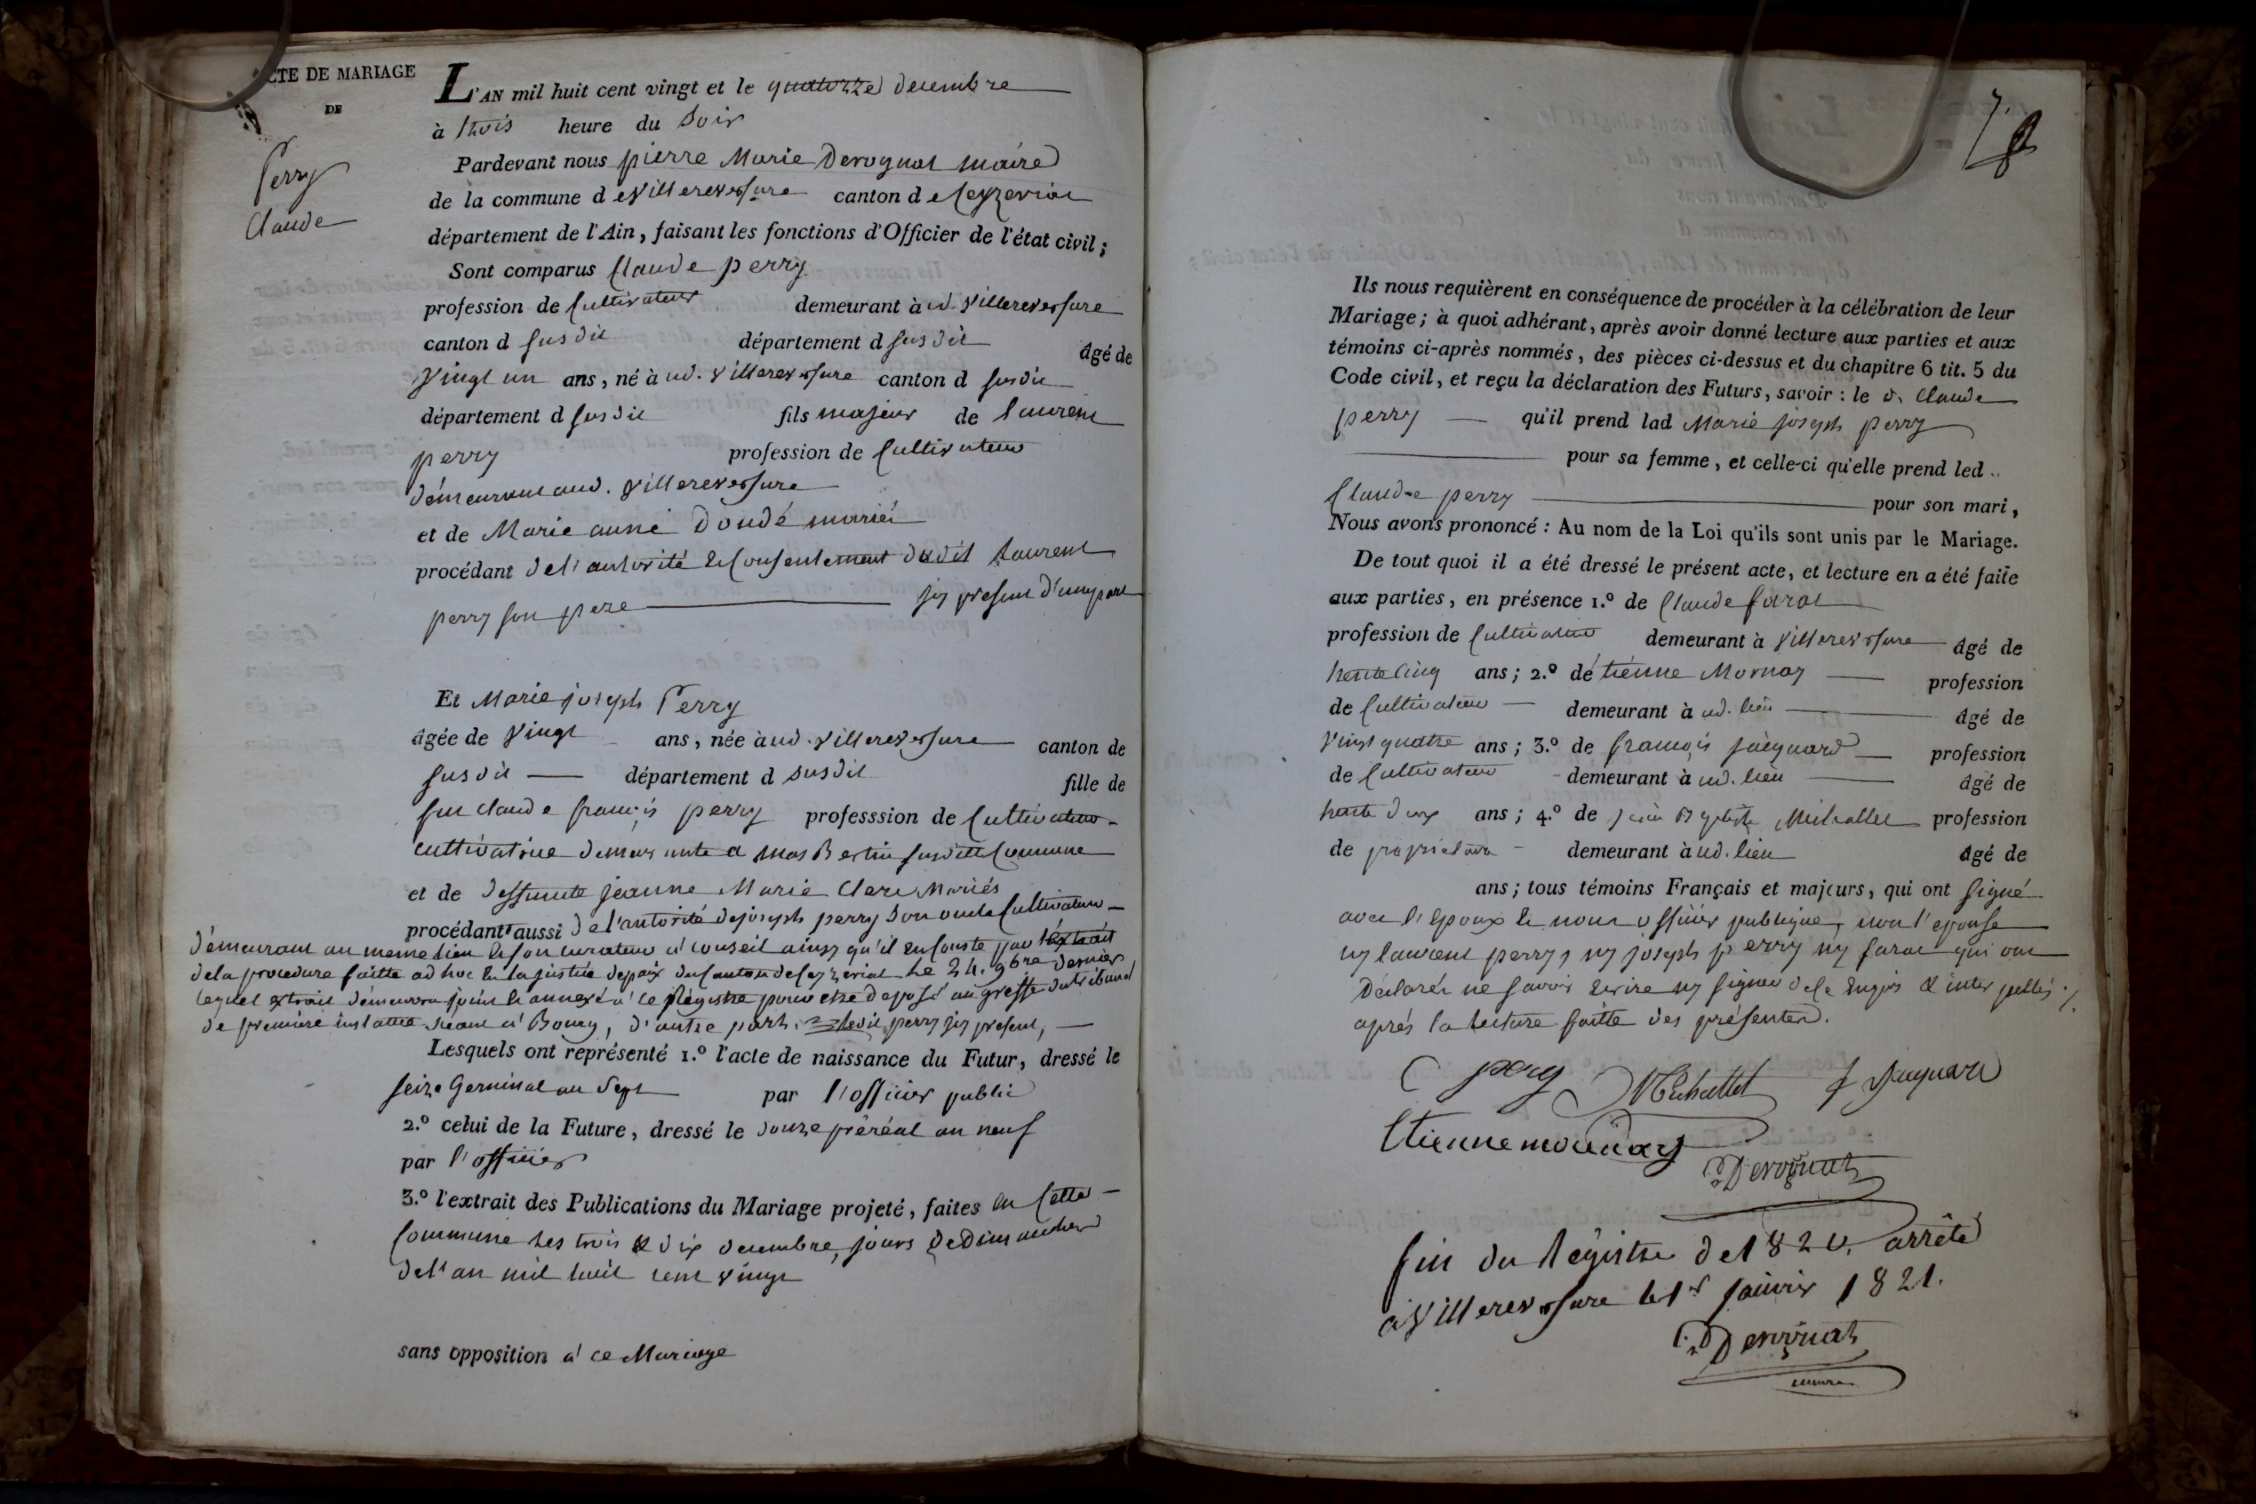 ACTE DE MARIAGE
DE
Perry
Claude
L'AN mil huit cent vingt et le quatorze decembre
à trois heure du soir
Pardevant nous pierre Marie Derognat maire
de la commune d e Villereversure canton d e Ceyzeriat
département de l'Ain, faisant les fonctions d'Officier de l'état civil;
Sont comparus Claude perry
profession de Cultivateur demeurant à ud. Villereversure
canton d susdit département d susdit âgé de
Vingt un ans, né à ud. Villereversure canton d susdit
département d susdit fils majeur de laurent
perry profession de Cultivateur
démeurant aud. Villereversure
et de Marie anne Doudé mariés
procédant de l'autorité & Consentement dudit Laurent
perry son pere jcy present d'une part
Et Marie joseph Perry
âgée de Vingt ans, née à ud. Villereversure canton de
susdit département d susdit fille de
feu claude françois perry professsion de Cultivateur
cultivatrice demeurante a Mas Bertin susditte Commune
et de deffunte jeanne Marie Clerc Mariés
procédant aussi de l'autorité de joseph perry son oncle Cultivateur
démeurant au meme lieu & son curateur a' conseil ainsy qu'il en conste par l'extrait
de la procedure faitte ad hoc en la justice depaix du Canton de Ceyzeriat Le 24. 9bre dernier
lequel extrait démeurera joint & annexé a' ce Régistre pour etre deposé au greffe du tribunal
de premiere instance séant a' Bourg, d'autre part. ledit perry jcy present,
Lesquels ont représenté 1.º l'acte de naissance du Futur, dressé le
seize Germinal an sept par l'officier public
2.º celui de la Future, dressé le douze préréal an neuf
par l'officier
3.º l'extrait des Publications du Mariage projeté, faites en Cette
Commune les trois & dix decembre, jours de Dimanches
de l'an mil huit cent vingt
sans opposition a' ce Mariage
Ils nous requièrent en conséquence de procéder à la célébration de leur
Mariage; à quoi adhérant, après avoir donné lecture aux parties et aux
témoins ci-après nommés, des pièces ci-dessus et du chapitre 6 tit. 5 du
Code civil, et reçu la déclaration des Futurs, savoir: le d. Claude
perry qu'il prend lad Marie joseph perry
pour sa femme, et celle-ci qu'elle prend led.
Claude perry pour son mari,
Nous avons prononcé: Au nom de la Loi qu'ils sont unis par le Mariage.
De tout quoi il a été dressé le présent acte, et lecture en a été faite
aux parties, en présence 1.º de Claude farat
profession de Cultivateur demeurant à Villereversure âgé de
trente Cinq ans; 2.º d'étiénne Mornay profession
de Cultivateur demeurant à ud. lieu âgé de
Vingt quatre ans; 3.º de françois jacquard profession
de Cultivateur demeurant à ud. lieu âgé de
trente deux ans; 4.º de jean Baptiste Michallet profession
de proprietaire demeurant à ud. lieu âgé de
ans; tous témoins Français et majeurs, qui ont signé
avec l'epoux & nous officier publique, non l'epouse
ny laurent perry, ny joseph perry ny farat qui ont
Déclarés ne savoir écrire ny signer de ce enquis & interpellés ./.
aprés la lecture faitte des présentes.
C perry Michallet f jacquard
Etienne mornay
Derognat
fin du Régistre de 1820. arrêté
à Villereversure le 1er janvier 1821.
Derognat
maire